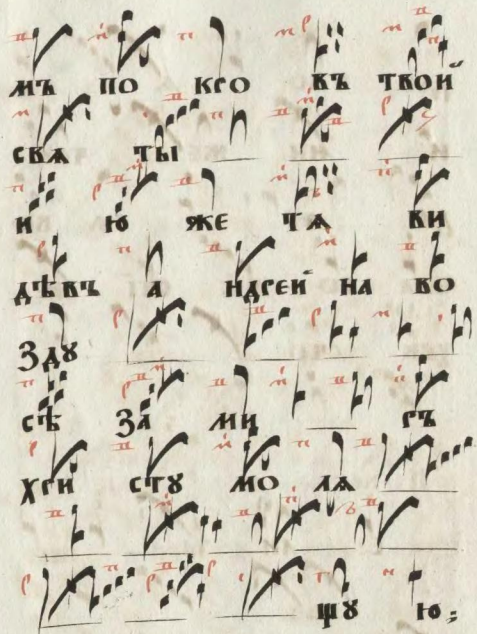 мъ по кро въ твой
свѧ ты
и ю же тѧ ви
дѣвъ а ндрей на во
здꙋ
сѣ за ми ръ
хри стꙋ мо лѧ
щꙋ ю;